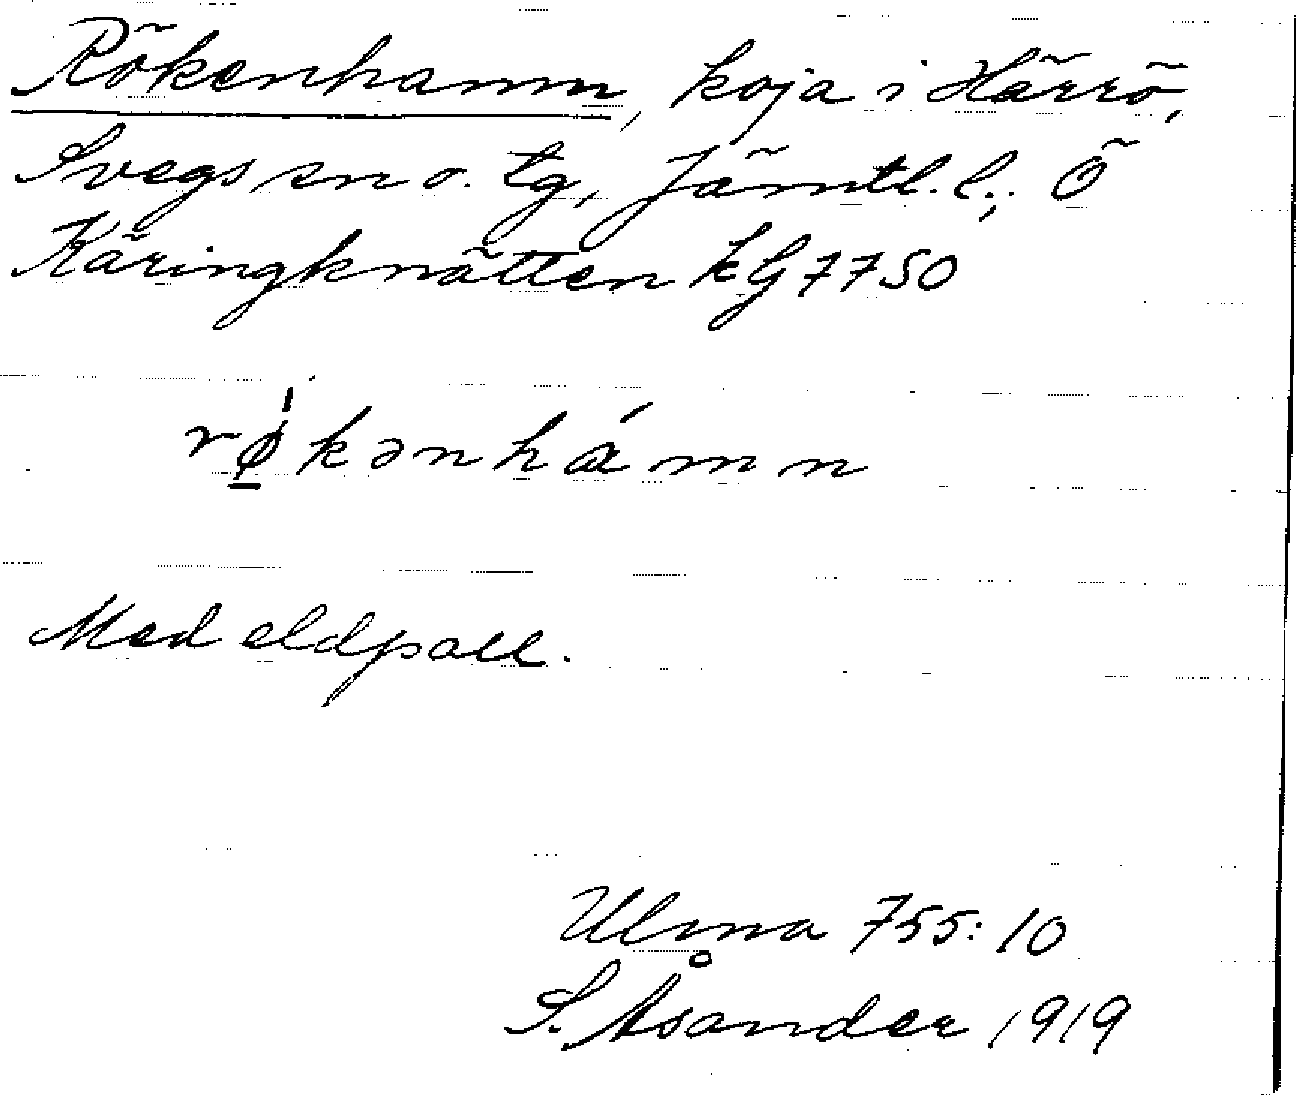 Rökenhamn, koja i Härrö,
Svegs sn o. tg, Jämtl. l.; Ö
Käringknätten kG 7750
rǿ̠kənhámn
Med eldpall.
Ulma 755:10
S. Åsander 1919